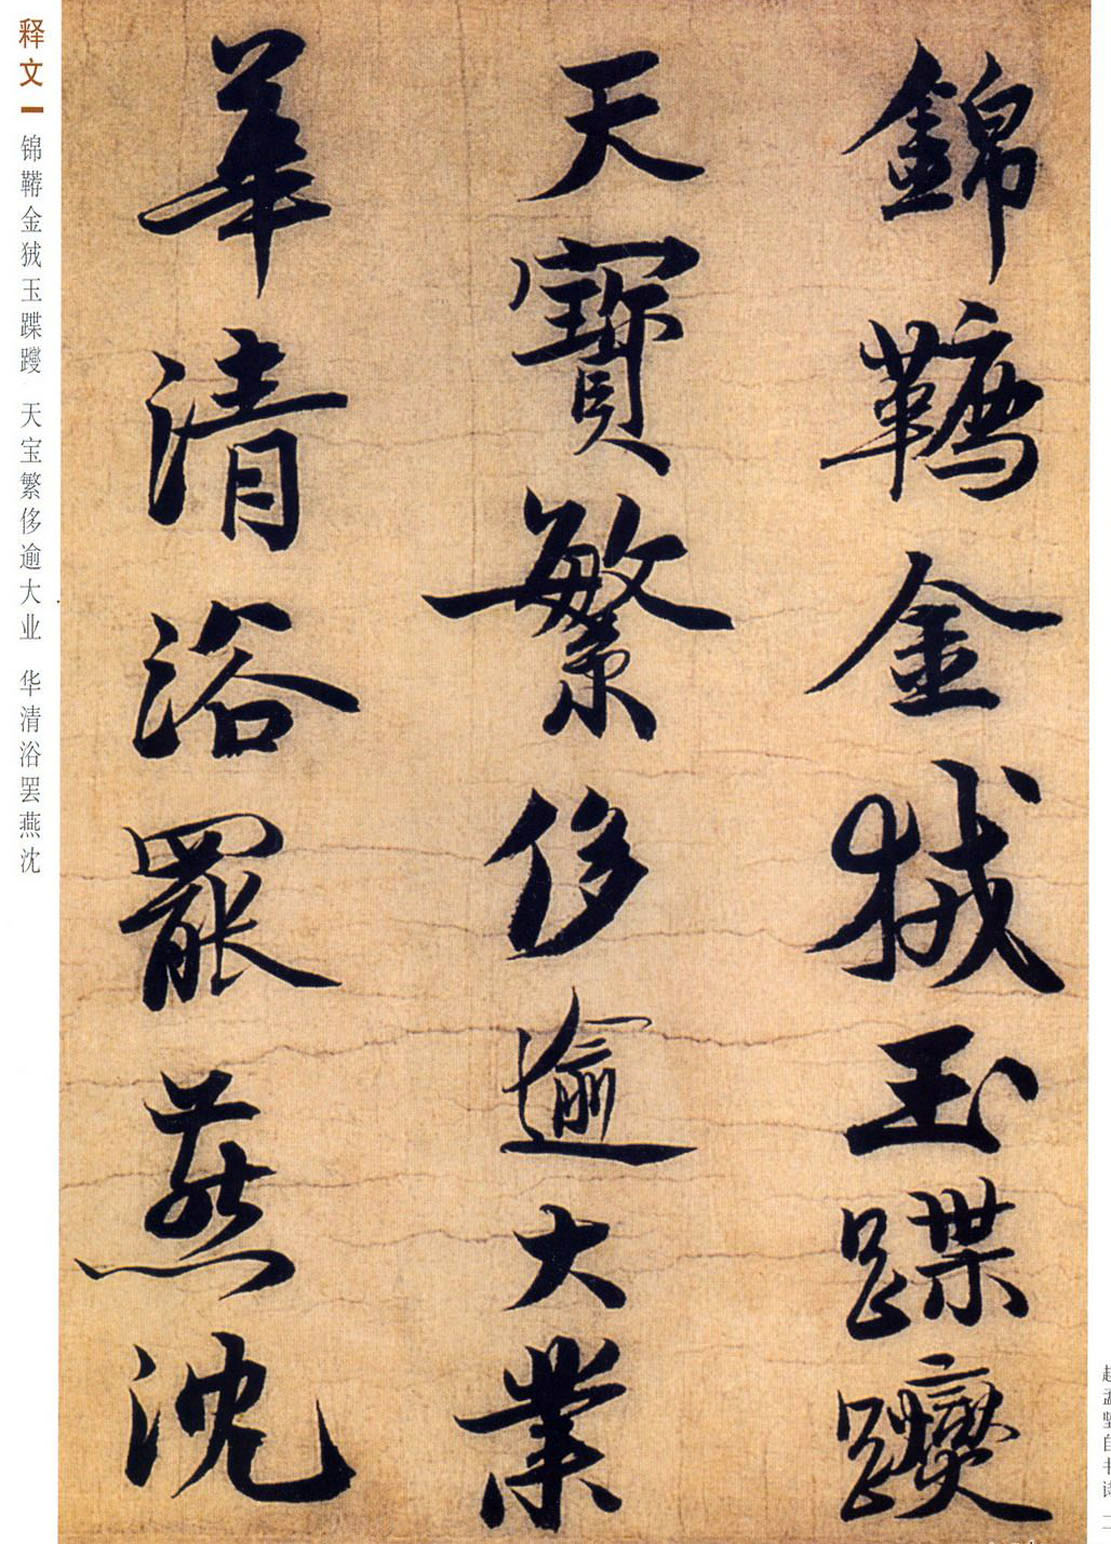 錦韉金狨玉蹀躞
天寶繁侈逾大業
華清浴罷燕沈
释文 锦鞯金狨玉蹀躞 天宝繁侈逾大业 华清浴罢燕沈
赵孟坚自书诗